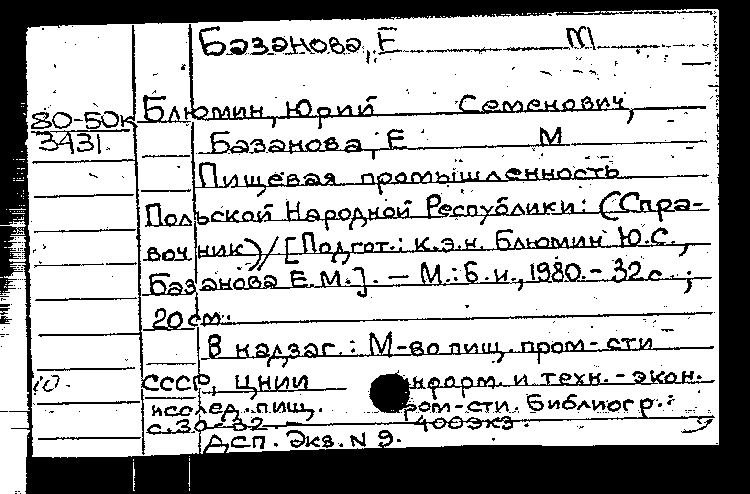 Базанова, Е М
80-50к Блюмин, Юрий Семенович,
3431 Базанова, Е М
Пищевая промышленность
Польской Народной Республики: (Спра-
вочник) / [Подгот.: к.э.н. Блюмин Ю.С.,
Базанова Е.М.]. — М.: Б.и., 1980. - 32 с. ;
20 см.
В надзаг.: М-во пищ. пром-сти
10. СССР, ЦНИИ нформ. и техн.-экон.
исслед. пищ. ром-сти. Библиогр.:
с. 30-32. 400 экз.
ДСП. Экз. N 9.